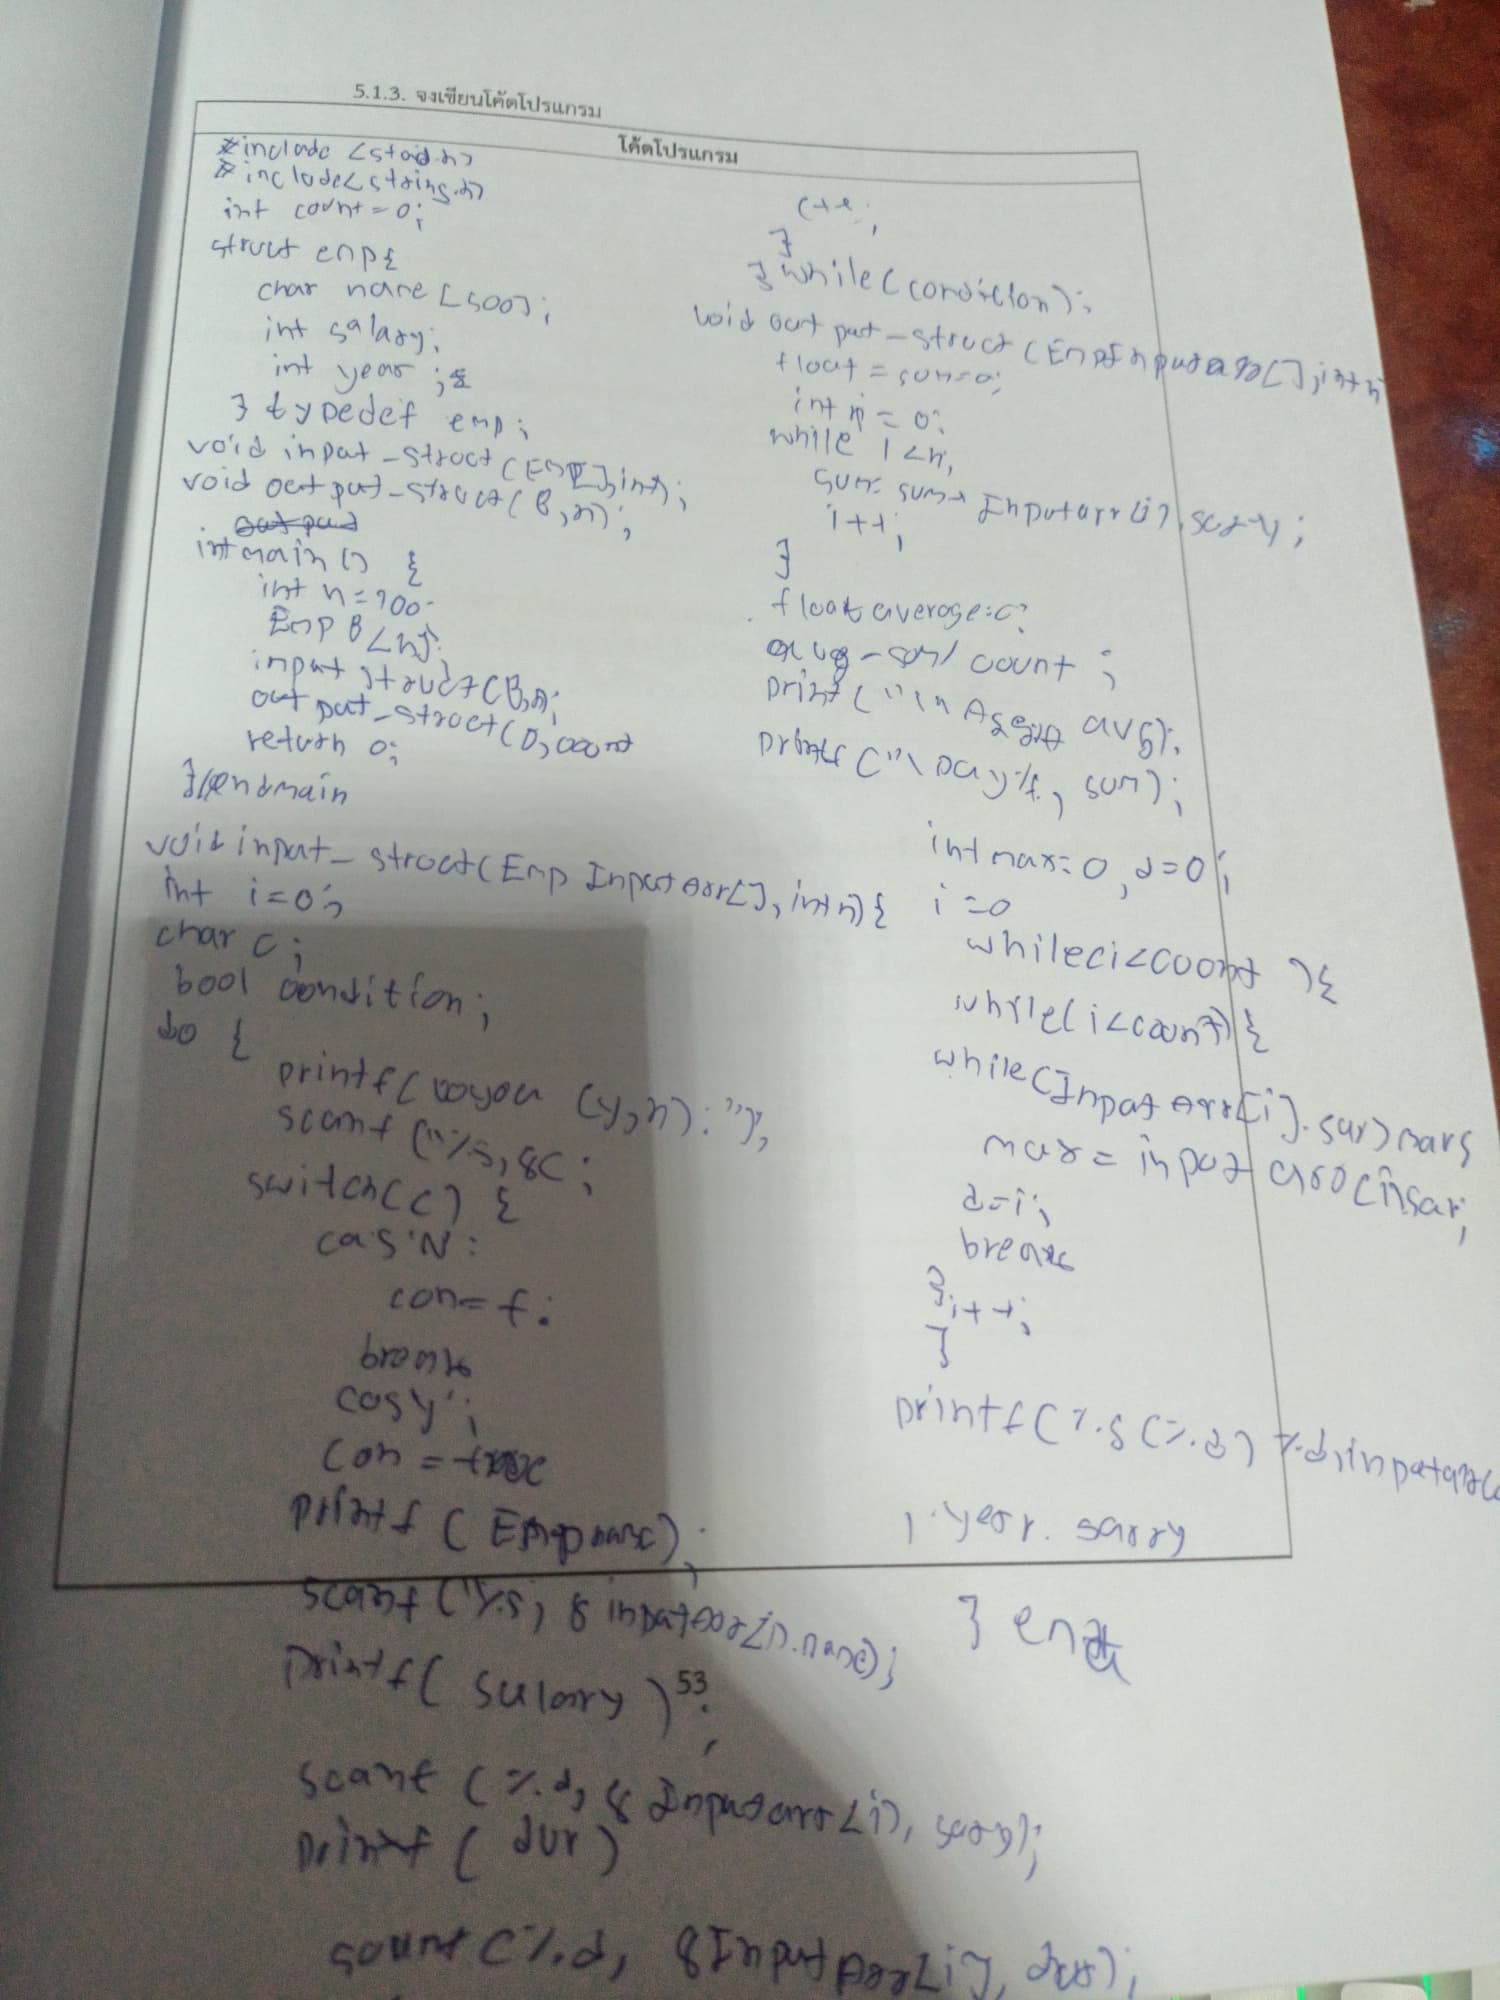 5.1.3. จงเขียนโค้ดโปรแกรม
โค้ดโปรแกรม
#include <stdio.h>
#include<string.h>
int count=0;
struct emp{
char name [500];
int salary;
int year ;
} typedef emp;
void input_struct(Emp[],int);
void output_struct(B,n);
int main () {
int n=100
Emp B[n];
input struct(B,n;
output_struct(B,count
return 0;
}//endmain
void input_struct(Emp InputArr[],int n){
int i=0;
char c;
bool condition;
do {
printf(Doyou (y,n):");
scanf ("%s,&c;
switch(c) {
cas'N:
con=f;
break
casy';
con = true
printf ( Empname);
scanf ("%s, & inputArr[i].name);
printf( sulary );
scanf (%d, & Inputarr[i], sary);
printf ( dur)
scanf (%d, &InputArr[i], dur);
c++;
}
} while(condition);
void output_struct (EmpInputarr[],int n
float = sum=0;
int i = 0;
while i<n,
sum= sum+ Inputarr[i].sary;
i++;
}
float average=0;
avg=sum/ count ;
print("\n avg);
printf ("\ pay%f, sum);
int max=0, d=0;
i=0
while(i<count ){
while(i<count){
while(InputArr[i].sar>max{
max= input arr[i]sar;
d=i;
break
};i++;
}
printf(%.s (%.d) %.d,inputarr[
].year. sarry
} end
53